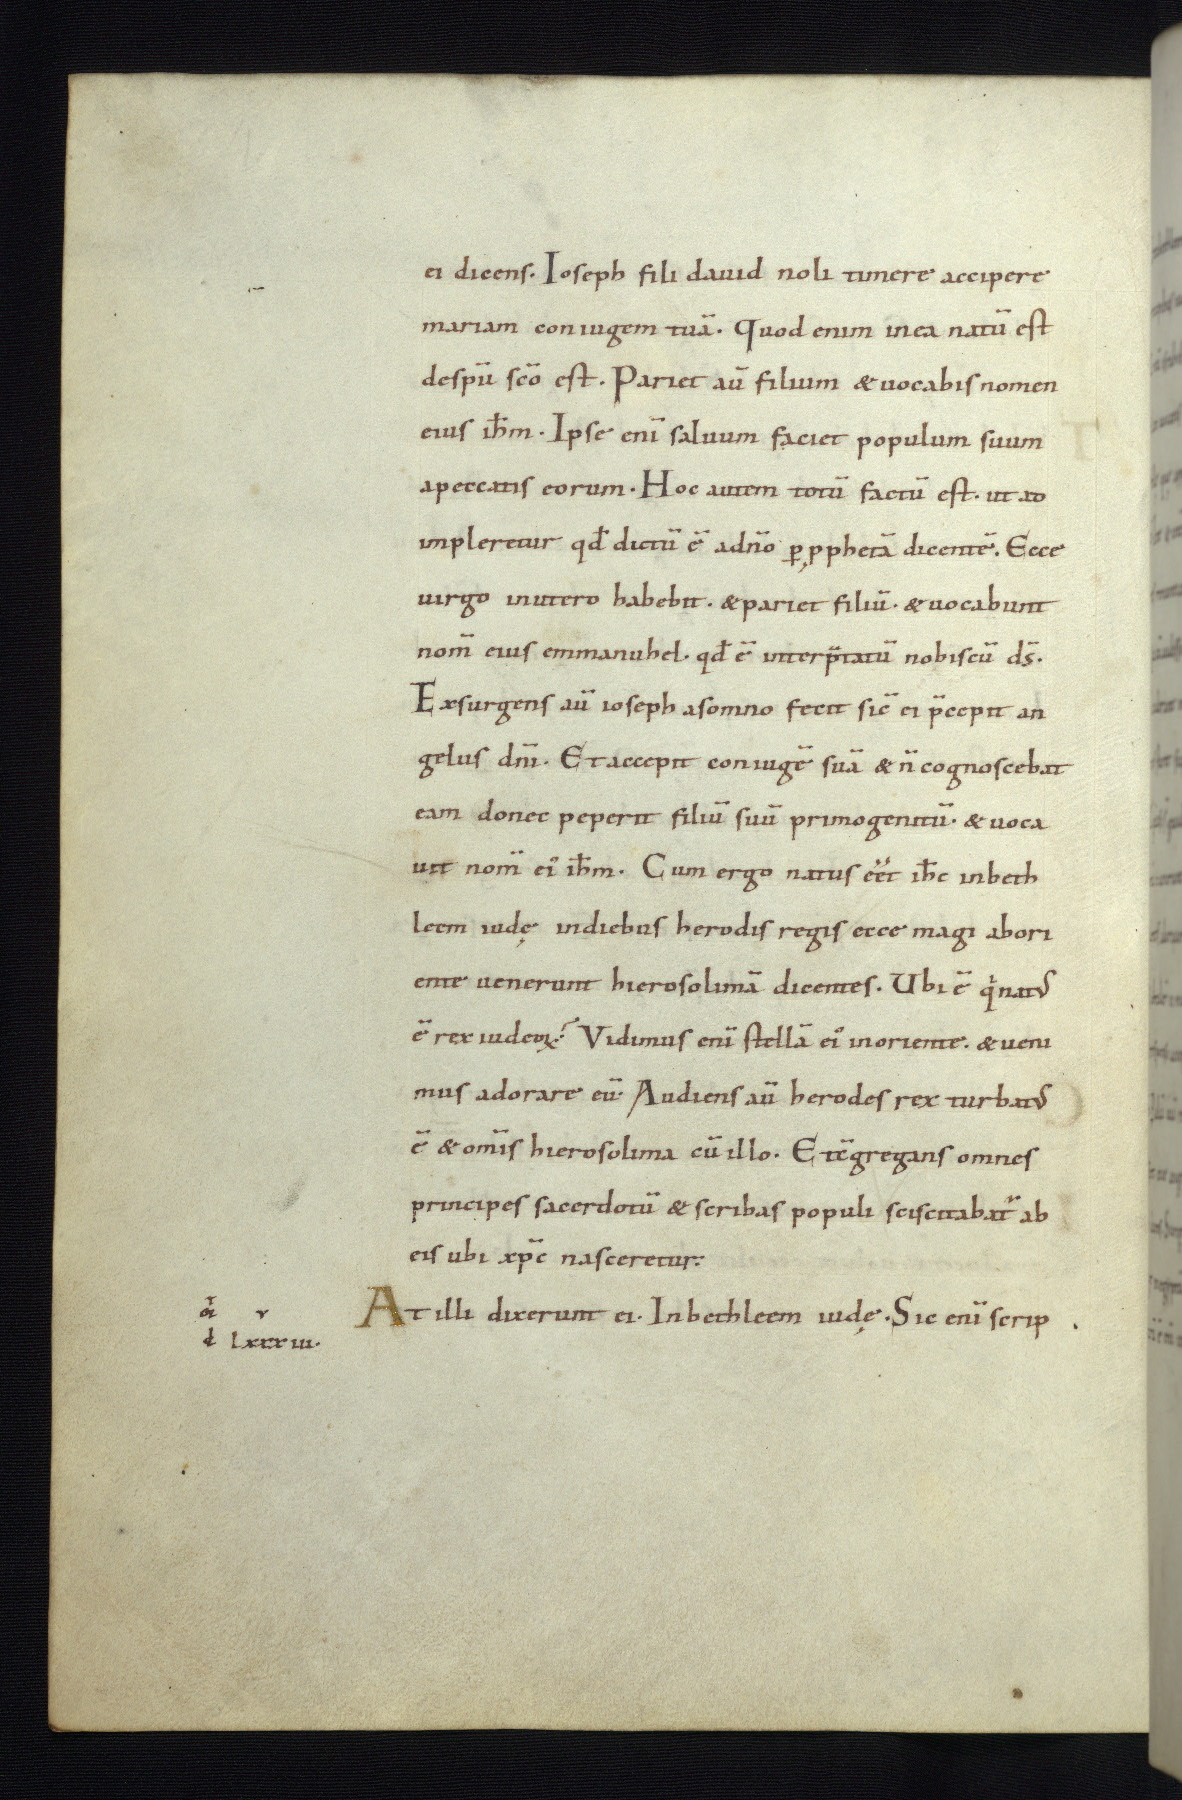 ei dicens. Ioseph fili dauid noli timere accipere
mariam coniugem tuā. Quod enim inea natū est
despū scō est. Pariet aū filium & uocabis nomen
eius ih̄m. Ipse enī saluum faciet populum suum
apeccatis eorum. Hoc autem totū factū est. ut ad
impleretur qd̄ dictū ē adn̄o ꝑ ꝓphetā dicentē. Ecce
uirgo inutero habebit. & pariet filiū. & uocabunt
nom̄ eius emmanuhel. qd̄ ē interp̄tatū nobiscū ds̄.
Exsurgens aū ioseph asomno fecit sic̄ ei p̄cepit an
gelus dn̄i. Et accepit coniugē suā & n̄ cognoscebat
eam donec peperit filiū suū primogenitū. & uoca
uit nom̄ ei᾽ ih̄m. Cum ergo natus eēt ih̄c inbeth
leem iudę indiebus herodis regis ecce magi abori
ente uenerunt hierosolimā dicentes. Ubi ē qͥ natꝰ
ē rex iudeoꝝ? Vidimus enī stellā ei᾽ inoriente. & ueni
mus adorare eū. Audiens aū herodes rex turbatꝰ
ē & om̄is hierosolima cū illo. Et c̄gregans omnes
principes sacerdotū & scribas populi sciscitabat̄ ab
eis ubi xp̄c nasceretur.
At illi dixerunt ei. Inbethleem iudę. Sic enī scrip
lxxxiii.